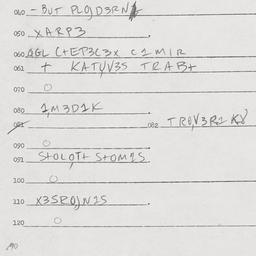 040 - BUT PLOJD3RN
050 XARP3.
060 AGL C+EP3C3X C2MIR
061 + KATUV3S TRAB+
070 O
080 1,M3D1K
081 082 TROV3R2 K8
090 O
091 S+OLOT+ S+OM2S
100 O
110 X3SROJN2S.
120 O